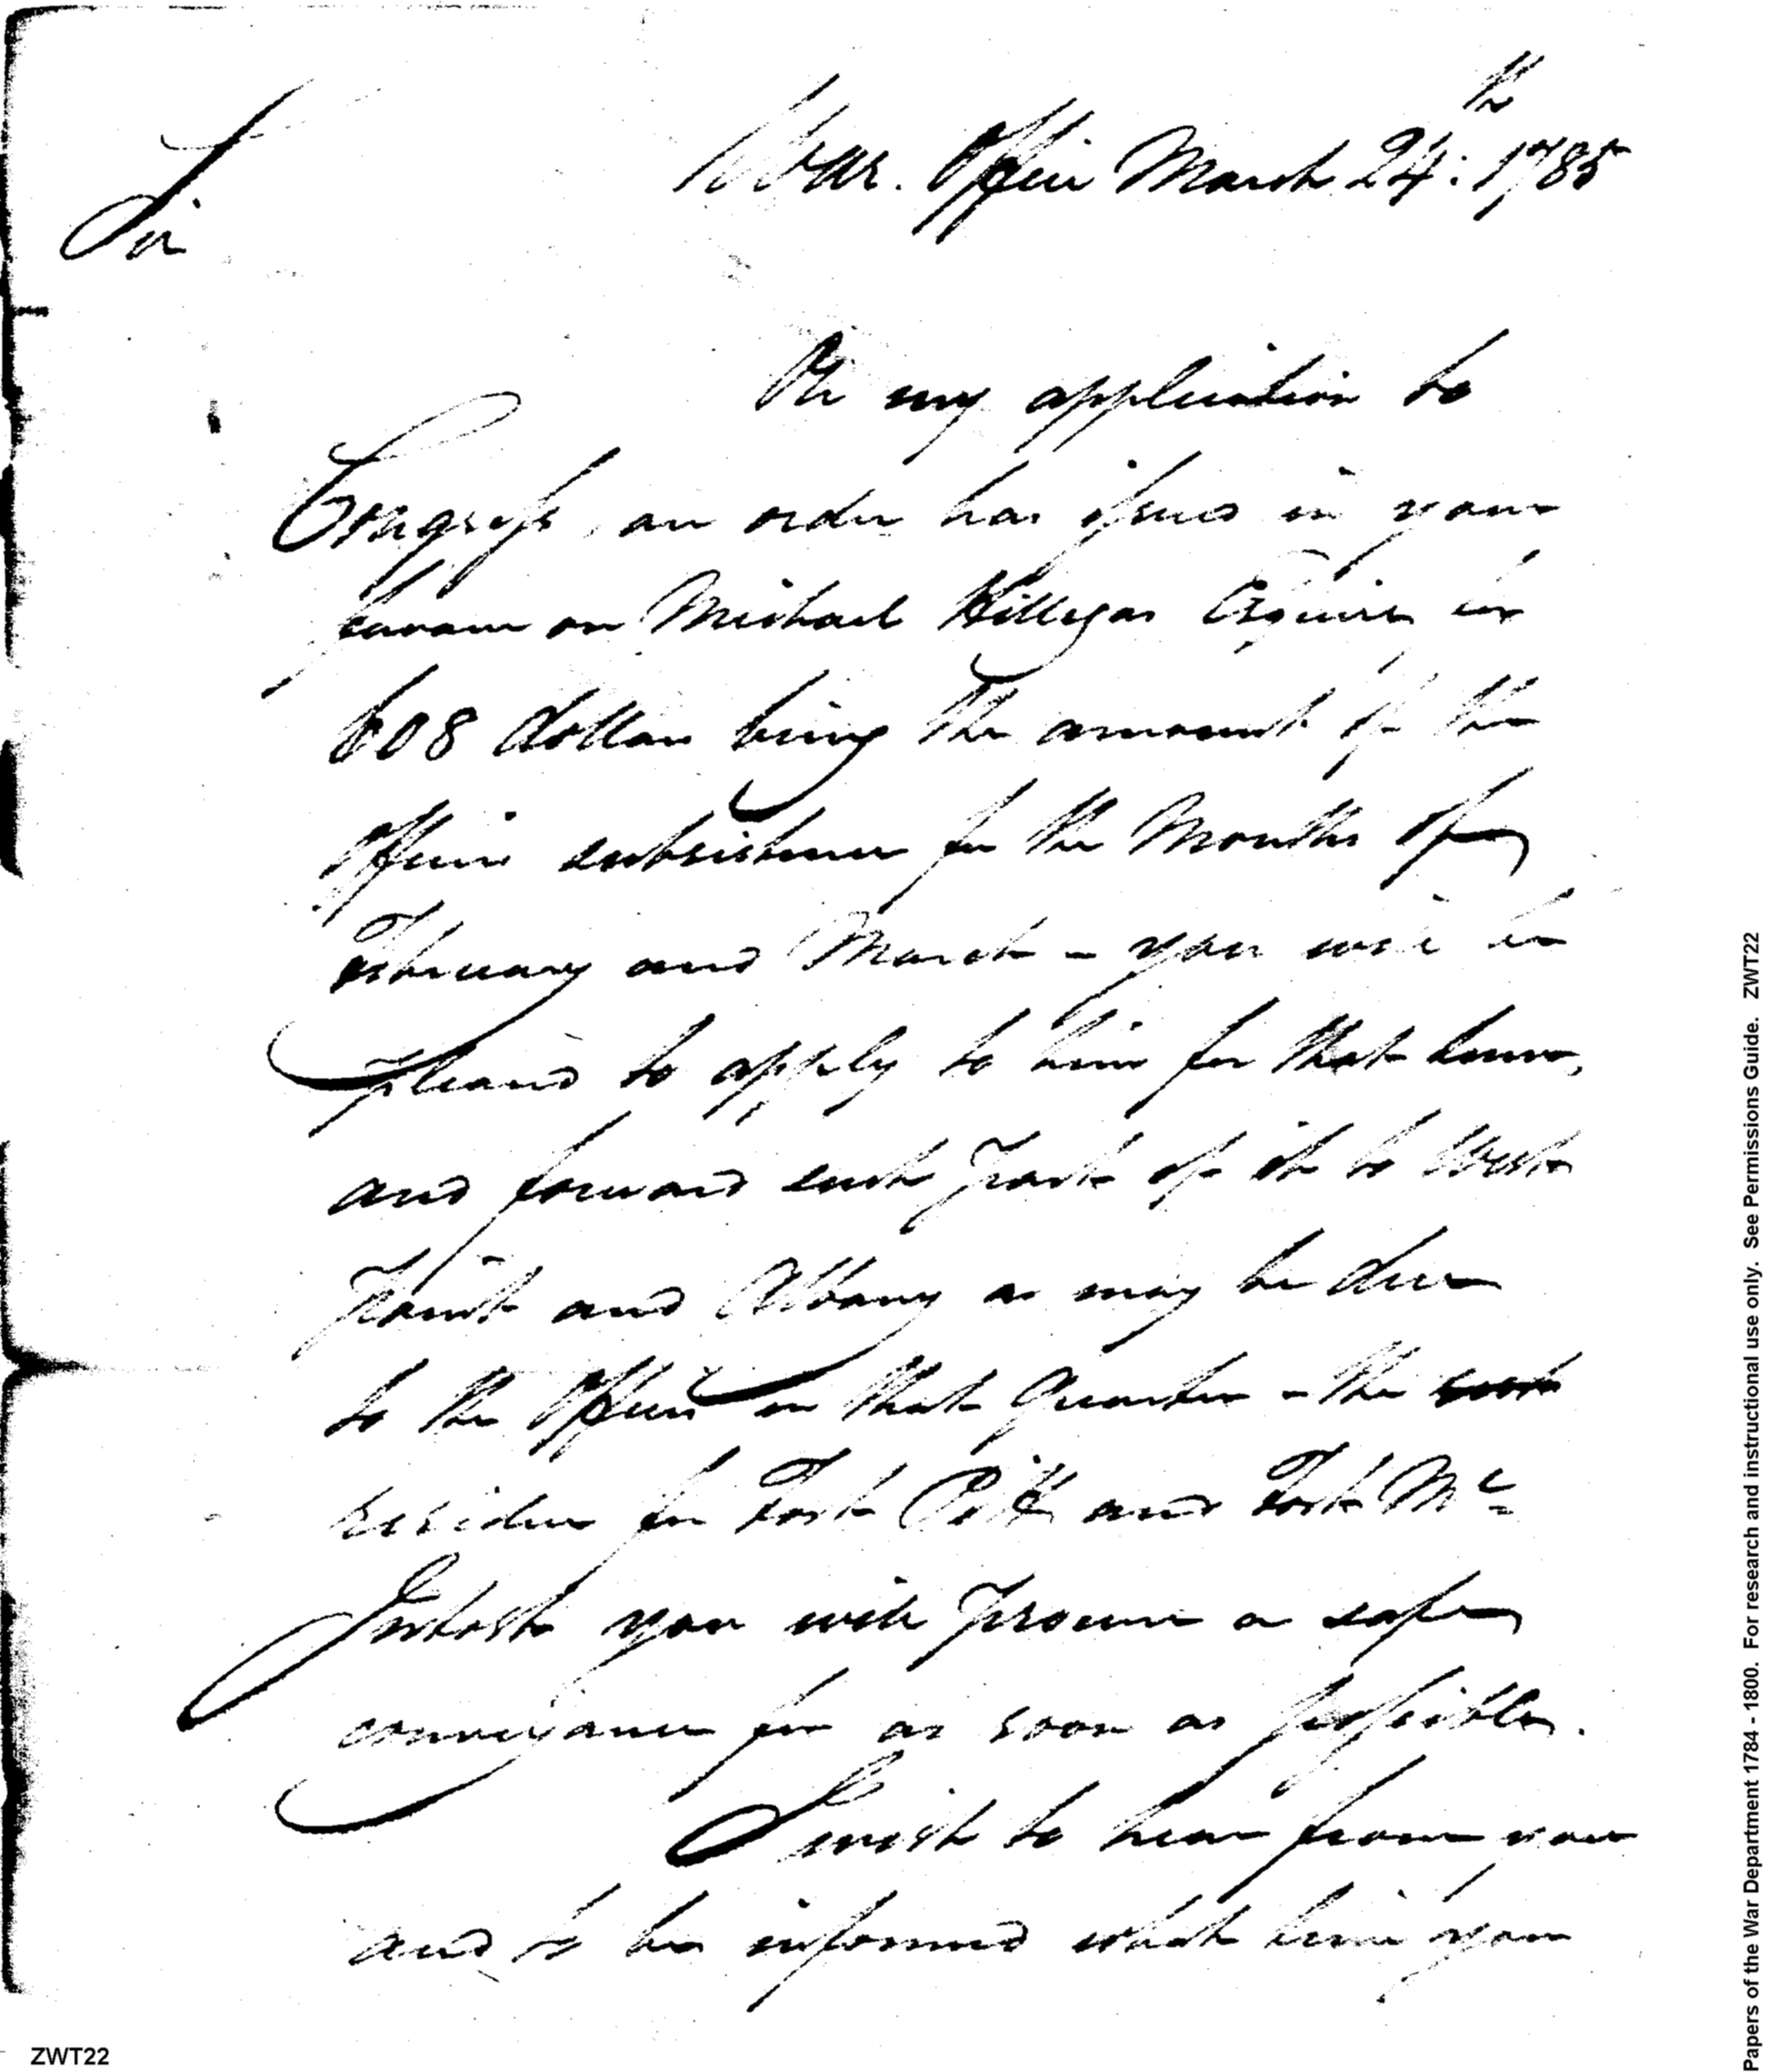 War. Office March 24th: 1785
Sir
On my application to
Congress, an order has issued in your
favour on Michael Hillegas Esquire for
608 dollars being the amount of the
officers subsistence for the Months of
February and March - you will be
pleased to apply to him for that sum,
and forward such part of it to West
Point and Albany as may be due
to the Officers in that Quarter - the
residue for Fort Pitt and Fort Mc
Intosh you will procure a safe
conveyance for as soon as possible.
I wish to hear from you
and to be informed what time you
ZWT22
Papers of the War Department 1784 - 1800. For research and instructional use only. See Permissions Guide. ZWT22